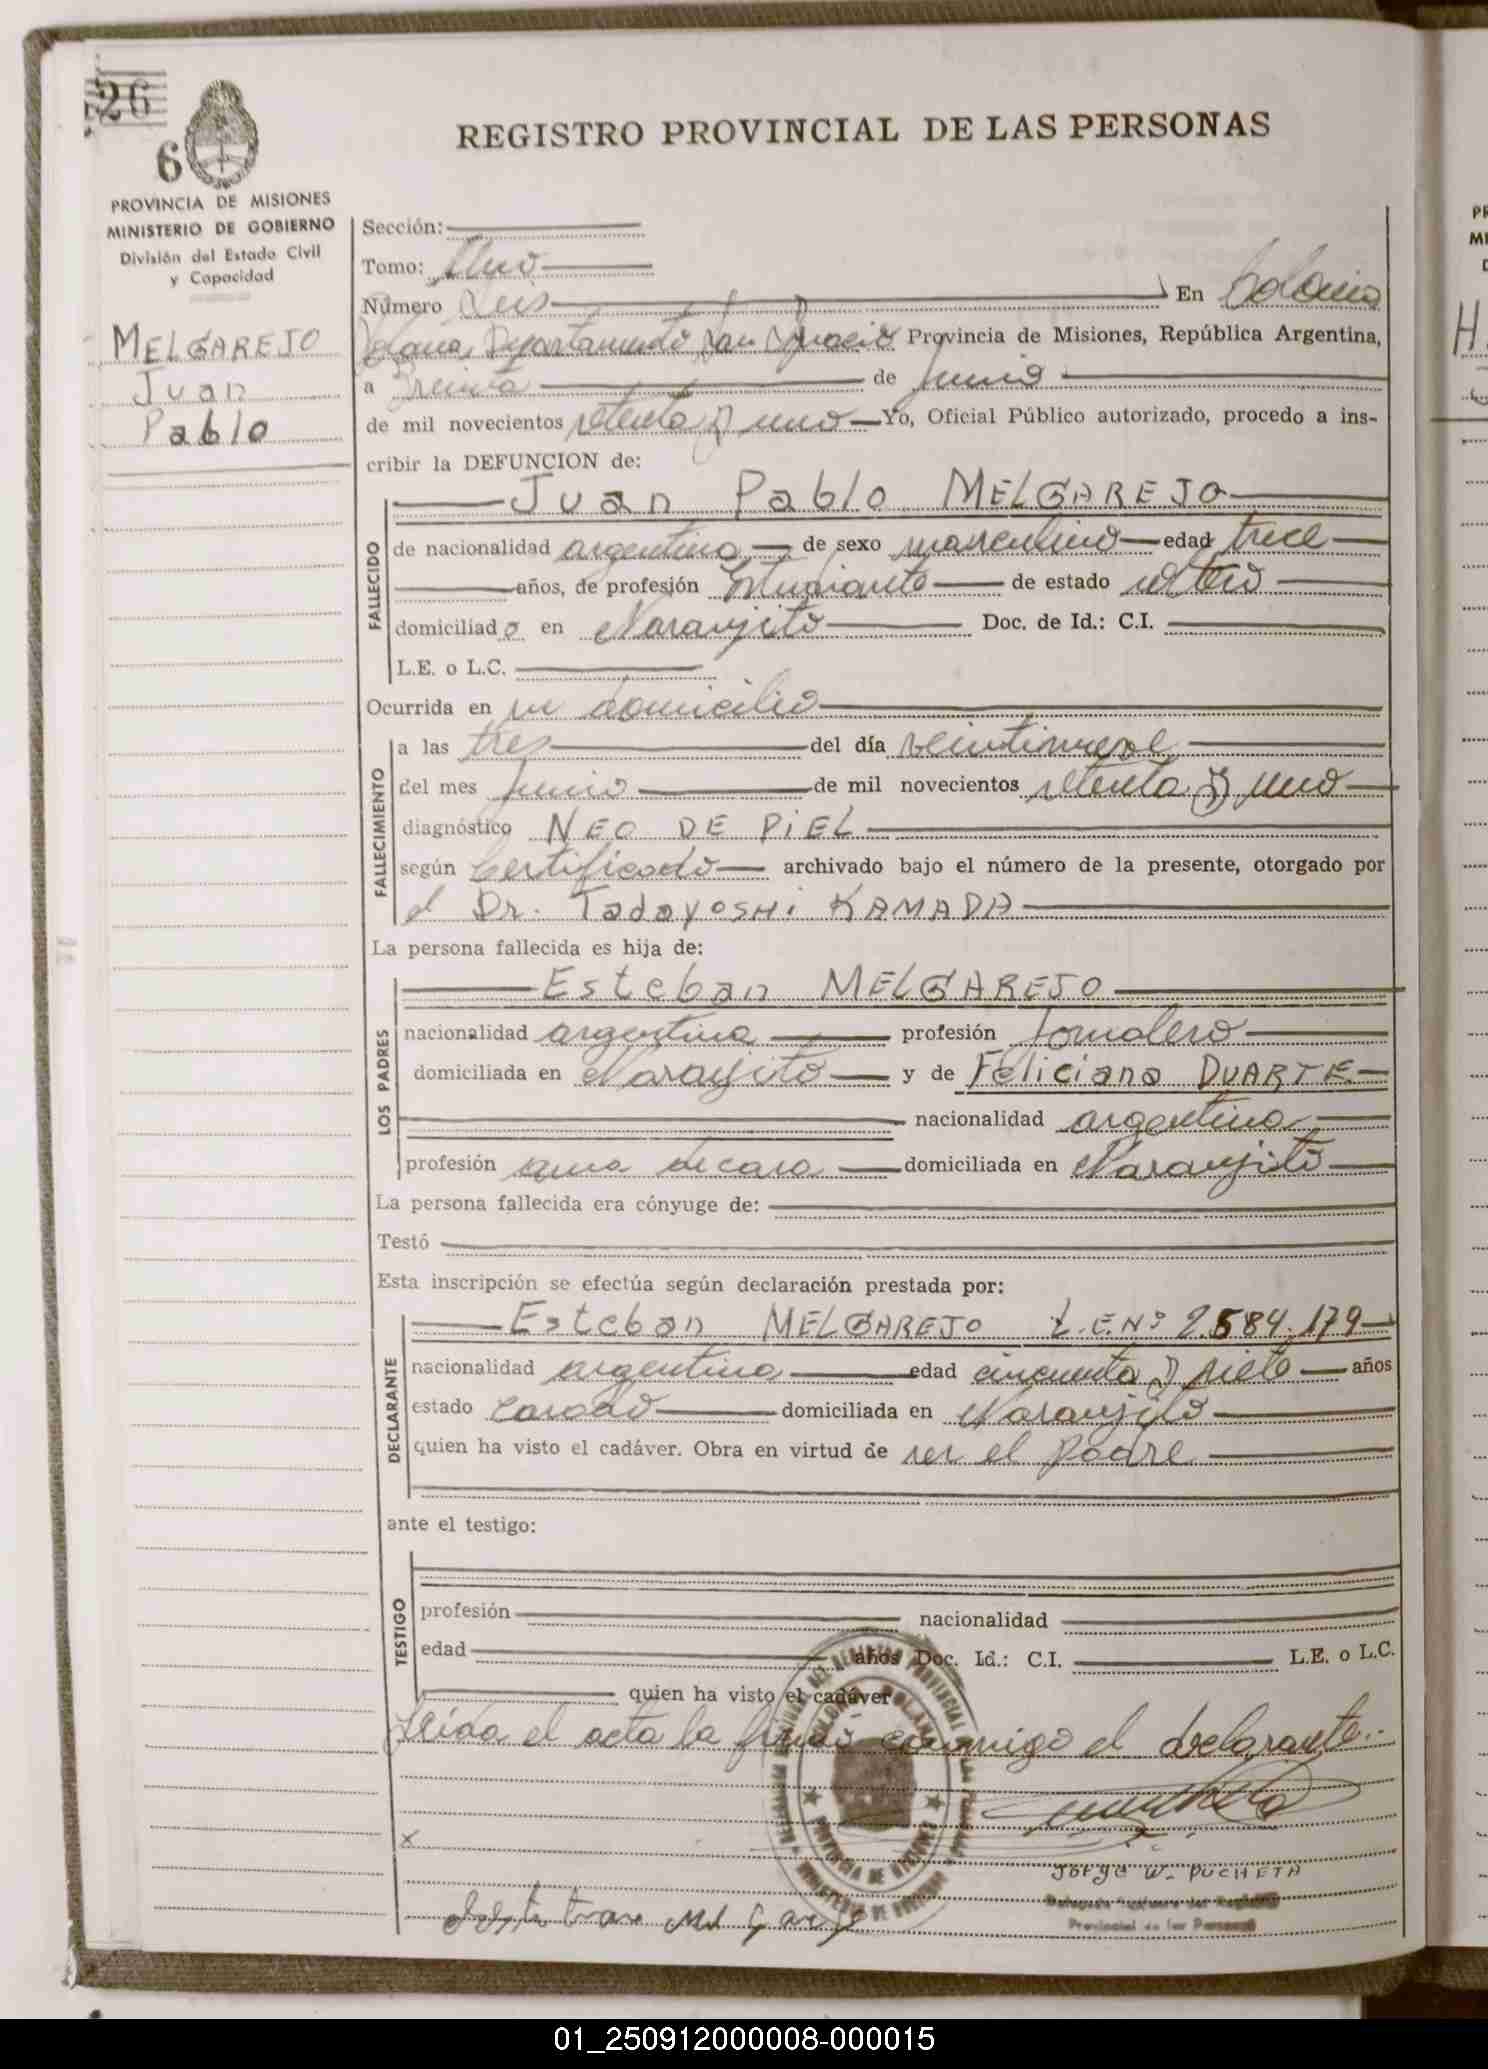 26
6
REGISTRO PROVINCIAL DE LAS PERSONAS
PROVINCIA DE MISIONES
MINISTERIO DE GOBIERNO
División del Estado Civil
y Capacidad
MELGAREJO
Juan
Pablo
Sección:
Tomo: Uno
Número Seis En Colonia
Polana, Departamento San Ignacio Provincia de Misiones, República Argentina,
a Treinta de Junio
de mil novecientos setenta y uno Yo, Oficial Público autorizado, procedo a ins-
cribir la DEFUNCION de:
Juan Pablo MELGAREJO
FALLECIDO
de nacionalidad argentina de sexo masculino edad trece
años, de profesión Estudiante de estado soltero
domiciliado en Naranjito Doc. de Id.: C.I.
L.E. o L.C.
Ocurrida en su domicilio
FALLECIMIENTO
a las tres del día veintinueve
del mes Junio de mil novecientos setenta y uno
diagnóstico NEO DE PIEL
según Certificado archivado bajo el número de la presente, otorgado por
el Dr. Tadayoshi KAMADA
La persona fallecida es hija de:
LOS PADRES
Esteban MELGAREJO
nacionalidad argentina profesión Jornalero
domiciliada en Naranjito y de Feliciana DUARTE
nacionalidad argentina
profesión ama de casa domiciliada en Naranjito
La persona fallecida era cónyuge de:
Testó
Esta inscripción se efectúa según declaración prestada por:
DECLARANTE
Esteban MELGAREJO L.E.Nº 2.584.179
nacionalidad argentina edad cincuenta y siete años
estado casado domiciliada en Naranjito
quien ha visto el cadáver. Obra en virtud de ser el padre
ante el testigo:
TESTIGO
profesión nacionalidad
edad años Doc. Id.: C.I. L.E. o L.C.
quien ha visto el cadáver
Leída el acta la firma conmigo el declarante.
x
Jorge W. PUCHETA
Provincial de las Personas
01_250912000008-000015